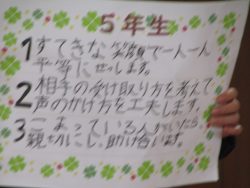 5年生
1すてきな笑顔で一人一人
平等にせっします。
2相手の受け取り方を考えて
声のかけ方を工夫します。
3こまっている人がいたら
親切にし、助け合います。